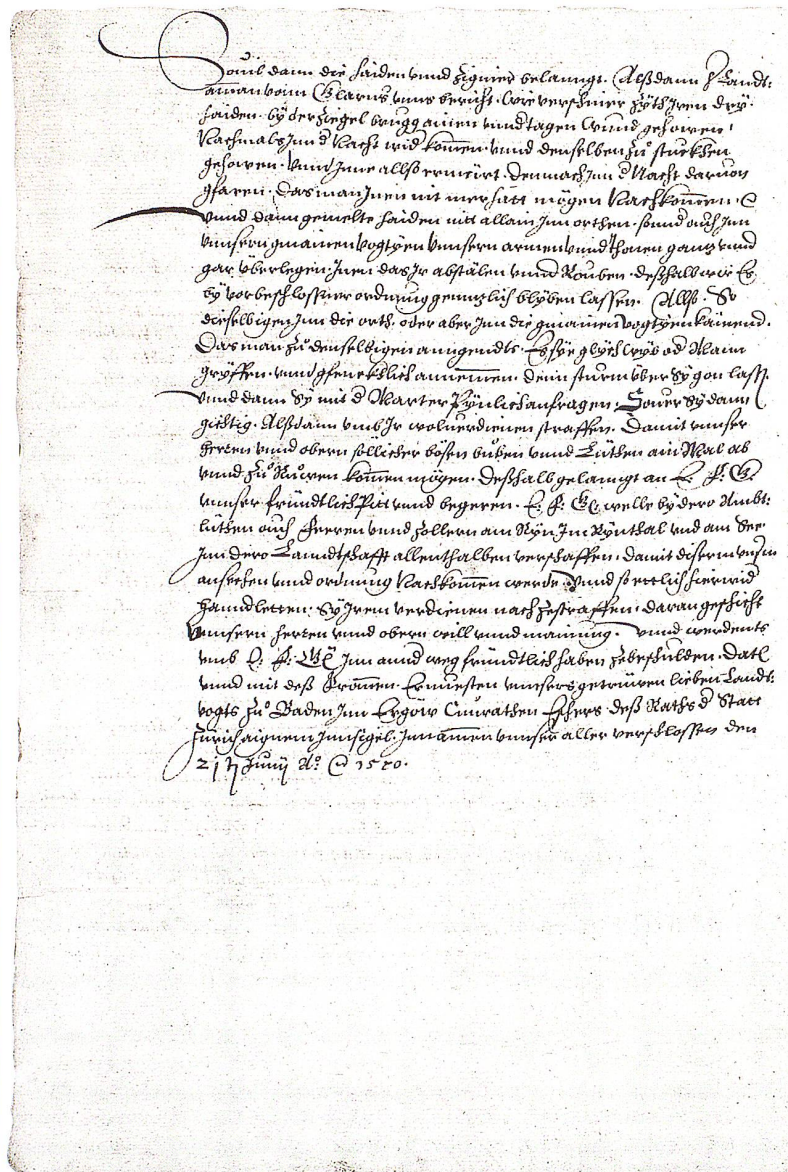 Souil dann die haiden vnnd Ziginer belanngt. Alßdann H Landt:
aman vonn Glarus vnns bericht. wie verschiner zyth Iren dry
haiden. by der Ziegel brugg ainen vnnd tagen wund gehowen.
Nachmals Inn d Nacht wid komen. vnnd denselben zů stuckhen
gehowen. vnnd Inne allso ermürt. Demnach Inn d Nacht daruon
gfaren. Das man Inen nit mer hatt mögen Nachkomen.
vnnd dann gemelte haiden nit allain Inn orthen. sonnd ouch Inn
vnnsern gmainen vogtyen vnnsern armen vnnderthonen ganz vnnd
gar überlegen. Inen das Ir abstälen vnnd Rouben. deßhalb wir Es
by vorbeschlossner ordnung genntzlich blyben lassen. Allso. So
dieselbigen Inn die orth. oder aber Inn die gmainen vogtyen kämend.
Das man zů denselbigen anngendts. Es sye glych wyb od Mann
gryffen. vnnd gfencklich annemen. denn sturm über sy gon lassen.
vnnd dann sy mit d Marter Pynlich anfragen. Souer sy dann
gichtig. Alßdann vmb Ir wolverdienen straffen. Damit vnnser
herren vnnd obern söllicher bösen buben vnnd Lüthen ain Mal ab
vnnd zů Růwen komen mögen. deßhalb gelanngt an E. F. G.
vnnser fründtlich Pitt vnnd begeren. E. F. G. welle by dero Ambt:
lüthen ouch Feeren vnnd Zollern am Ryn. Im Rynthal vnd am See
Inn dero Lanndtschafft allenthalben verschaffen. damit disem vnserm
ansechen vnnd ordnung Nachkomen werde. vnnd so ettlich hierwid
hanndletten. sy Irem verdienen nach zestraffen. daran geschicht
vnnsern herren vnnd obern will vnnd mainung. vnnd werdents
vmb E. F. G. Inn annd weg fründtlich haben zebeschulden. Datl
vnnd mit deß Fromen. Ernuesten vnnsers getrüwen lieben Landt:
vogts zů Baden Inn Ergöw Cůnrathen Eschers. deß Raths d Statt
Zürich aignem Innsigel. Innamen vnnser aller verschlossen den
21 Junij Aº